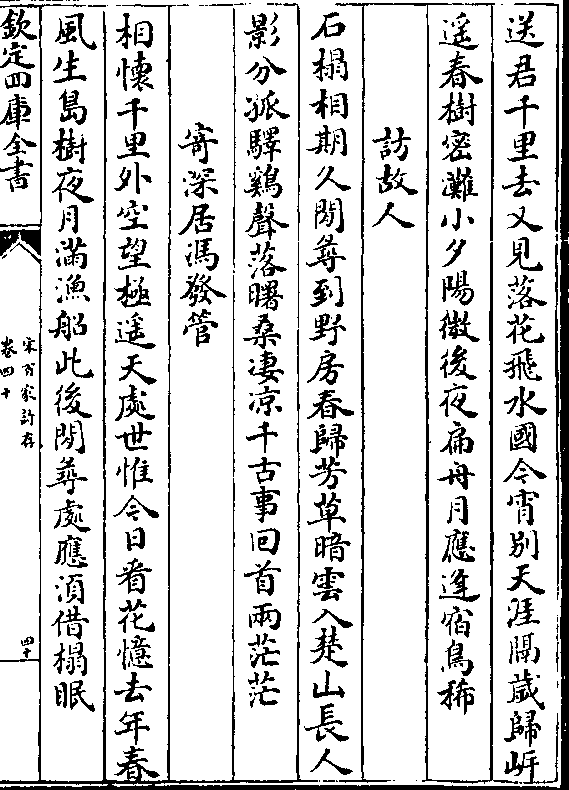 送君千里去又見落花飛水國今宵別天涯隔歲歸㟁
遥春樹密灘小夕陽微後夜扁舟月應逢宿鳥稀
訪故人
石榻相期久閒尋到野房春歸芳草暗雲入楚山長人
影分孤驛鷄聲落曙桑凄凉千古事回首兩茫茫
寄深居馮發管
相懷千里外空望極遥天處世惟今日看花憶去年春
風生島樹夜月滿漁船此後閒尋處應湏借榻眠
欽定四庫全書
宋百家詩存
卷四十
四十